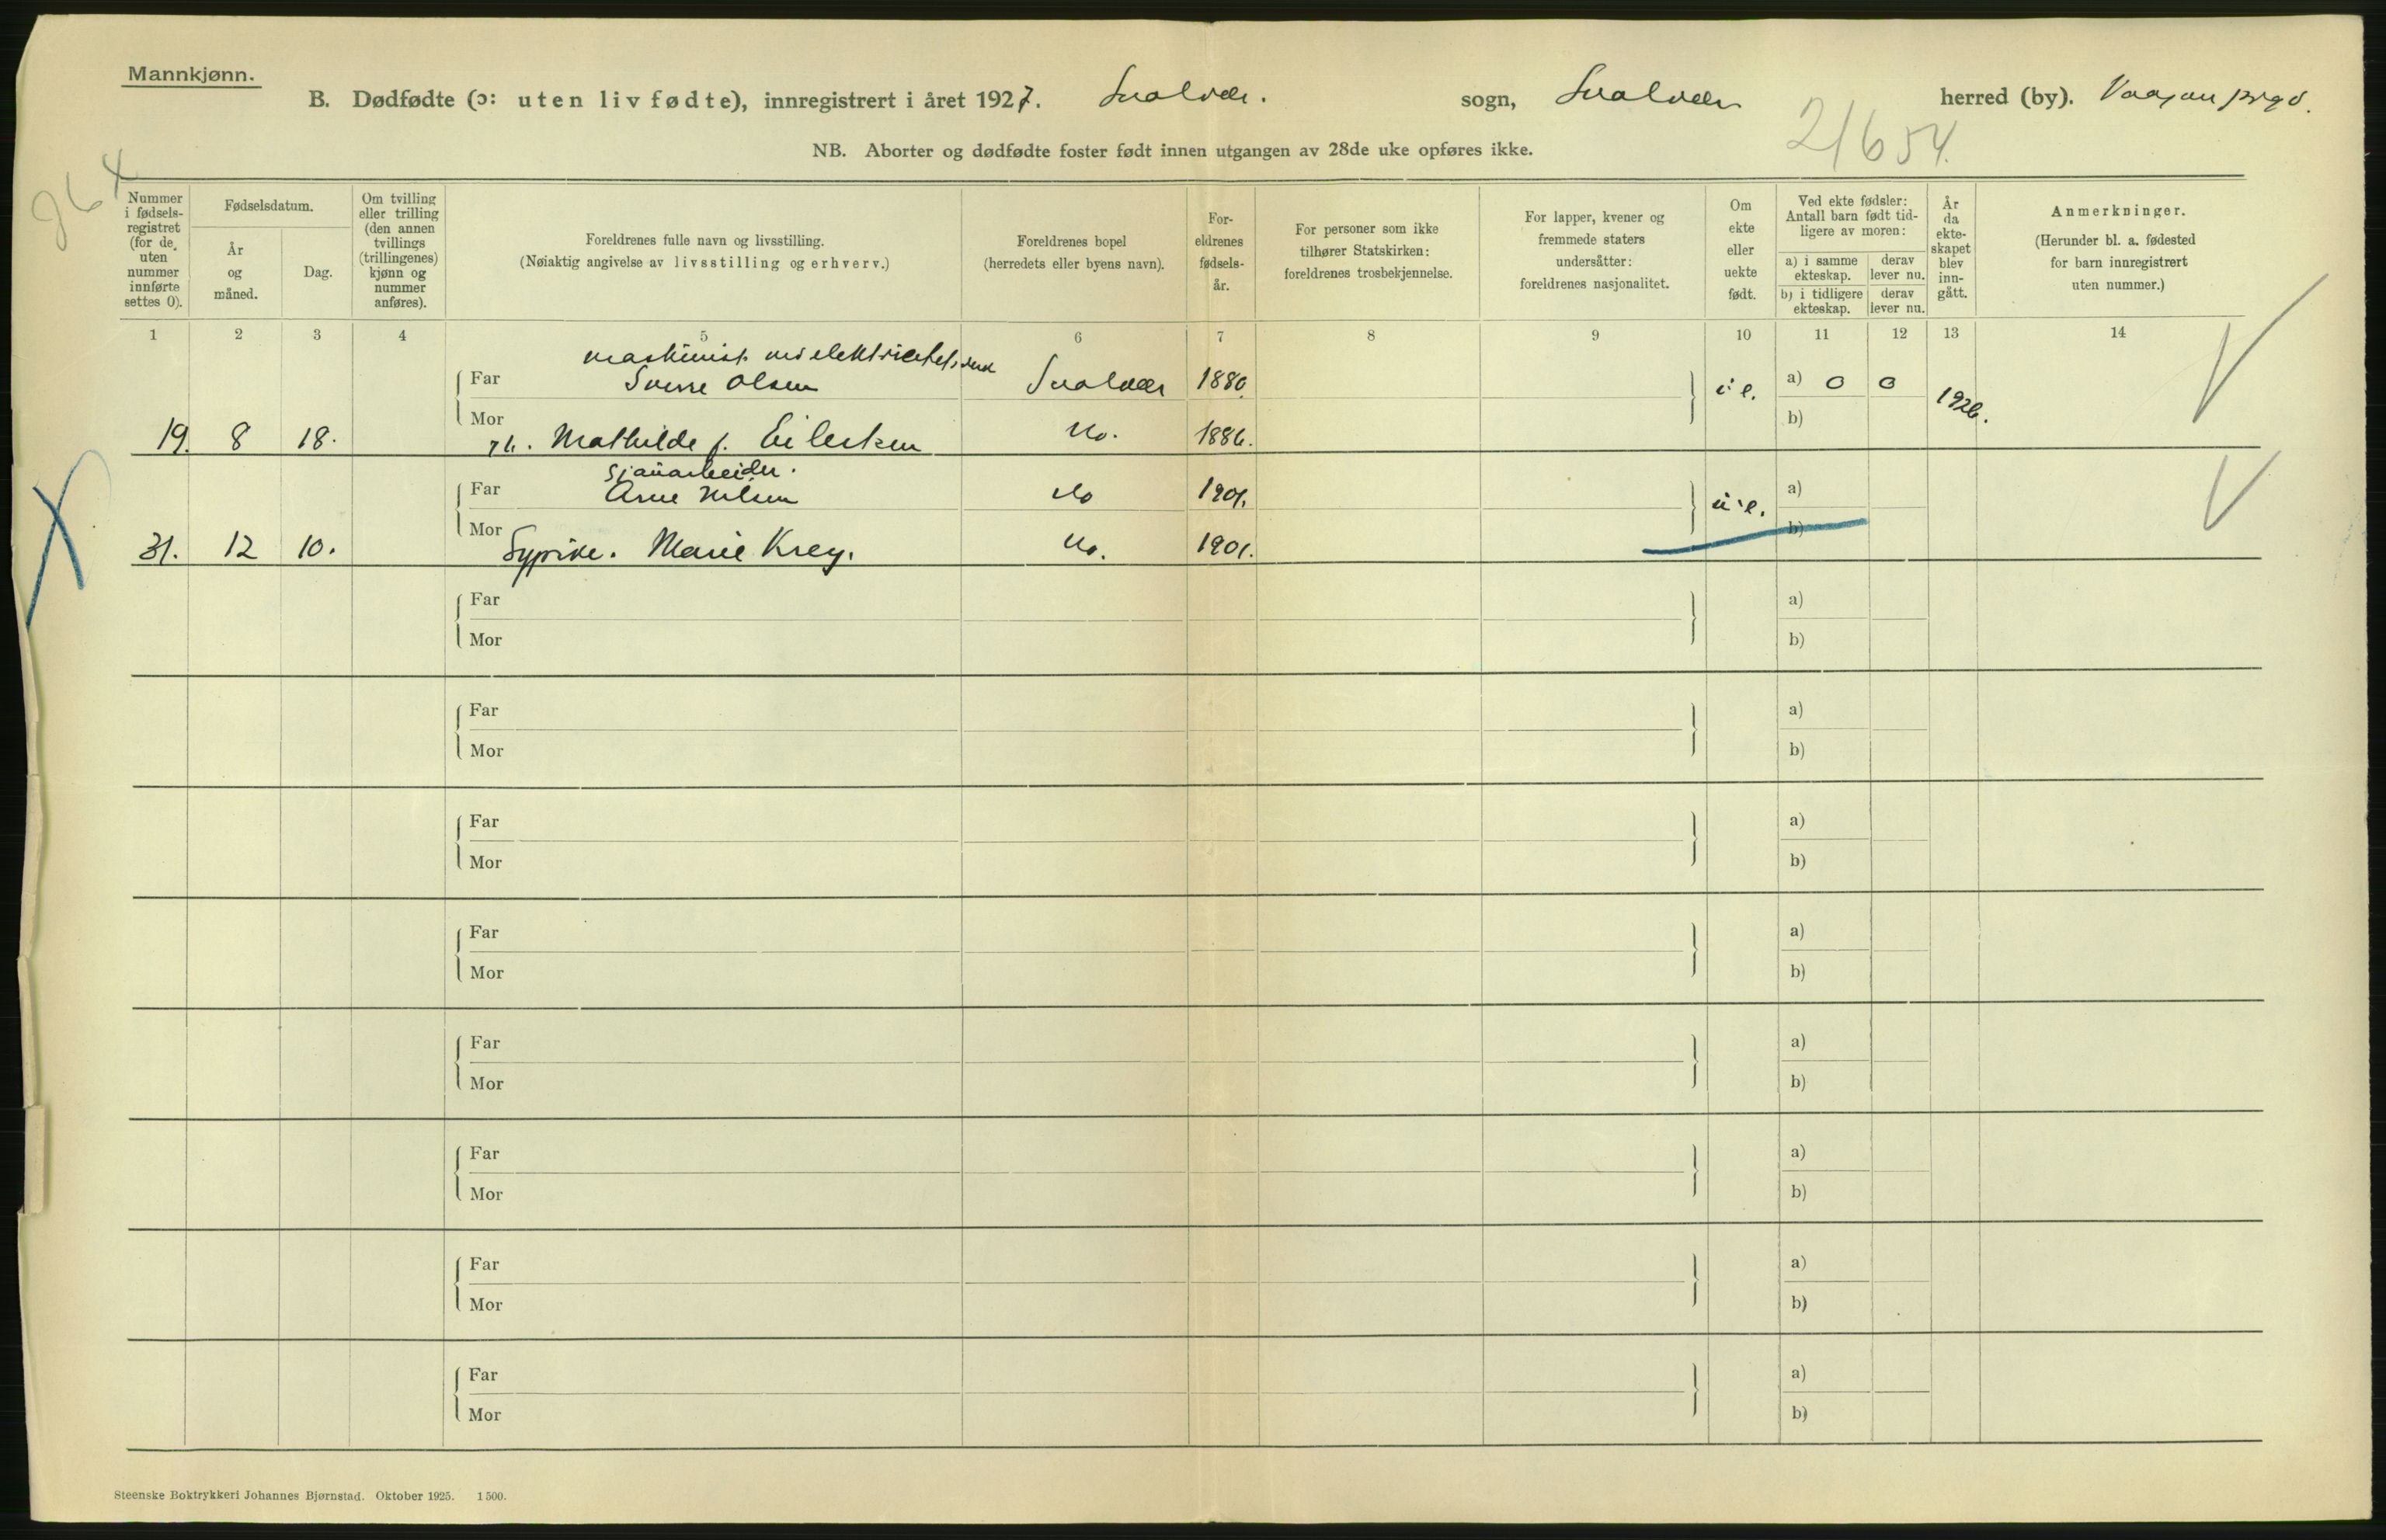 Mannkjønn.
B. Dødfødte (ɔ: uten liv fødte), innregistrert i året 1927. Svolvær. sogn, Svolvær herred (by). Vaagan prgd.
NB. Aborter og dødfødte foster født innen utgangen av 28de uke opføres ikke.
21654.
264
Nummer i fødselsregistret (for de uten nummer innførte settes 0).
Fødselsdatum.
År og måned.
Dag.
Om tvilling eller trilling (den annen tvillings (trillingenes) kjønn og nummer anføres).
Foreldrenes fulle navn og livsstilling.
(Nøiaktig angivelse av livsstilling og erhverv.)
Foreldrenes bopel
(herredets eller byens navn).
Foreldrenes fødselsår.
For personer som ikke tilhører Statskirken: foreldrenes trosbekjennelse.
For lapper, kvener og fremmede staters undersåtter: foreldrenes nasjonalitet.
Om ekte eller uekte født.
Ved ekte fødsler: Antall barn født tidligere av moren:
a) i samme ekteskap. derav lever nu.
b) i tidligere ekteskap. derav lever nu.
År da ekteskapet blev inngått.
Anmerkninger.
(Herunder bl. a. fødested for barn innregistrert uten nummer.)
1 2 3 4 5 6 7 8 9 10 11 12 13 14
maskinist ved elektricitetsverk
Far Sverre Olsen Svolvær 1880. a) 0 0 1926.
19. 8 18. Mor Mathilde f. Eilertsen 1886. b)
Far Arne Nilsen 1901. a)
31. 12 10. Mor Sypike. Marie Krey. 1901. b)
Far a)
Mor b)
Far a)
Mor b)
Far a)
Mor b)
Far a)
Mor b)
Far a)
Mor b)
Far a)
Mor b)
Far a)
Mor b)
Far a)
Mor b)
Steenske Boktrykkeri Johannes Bjørnstad. Oktober 1925. 1500.